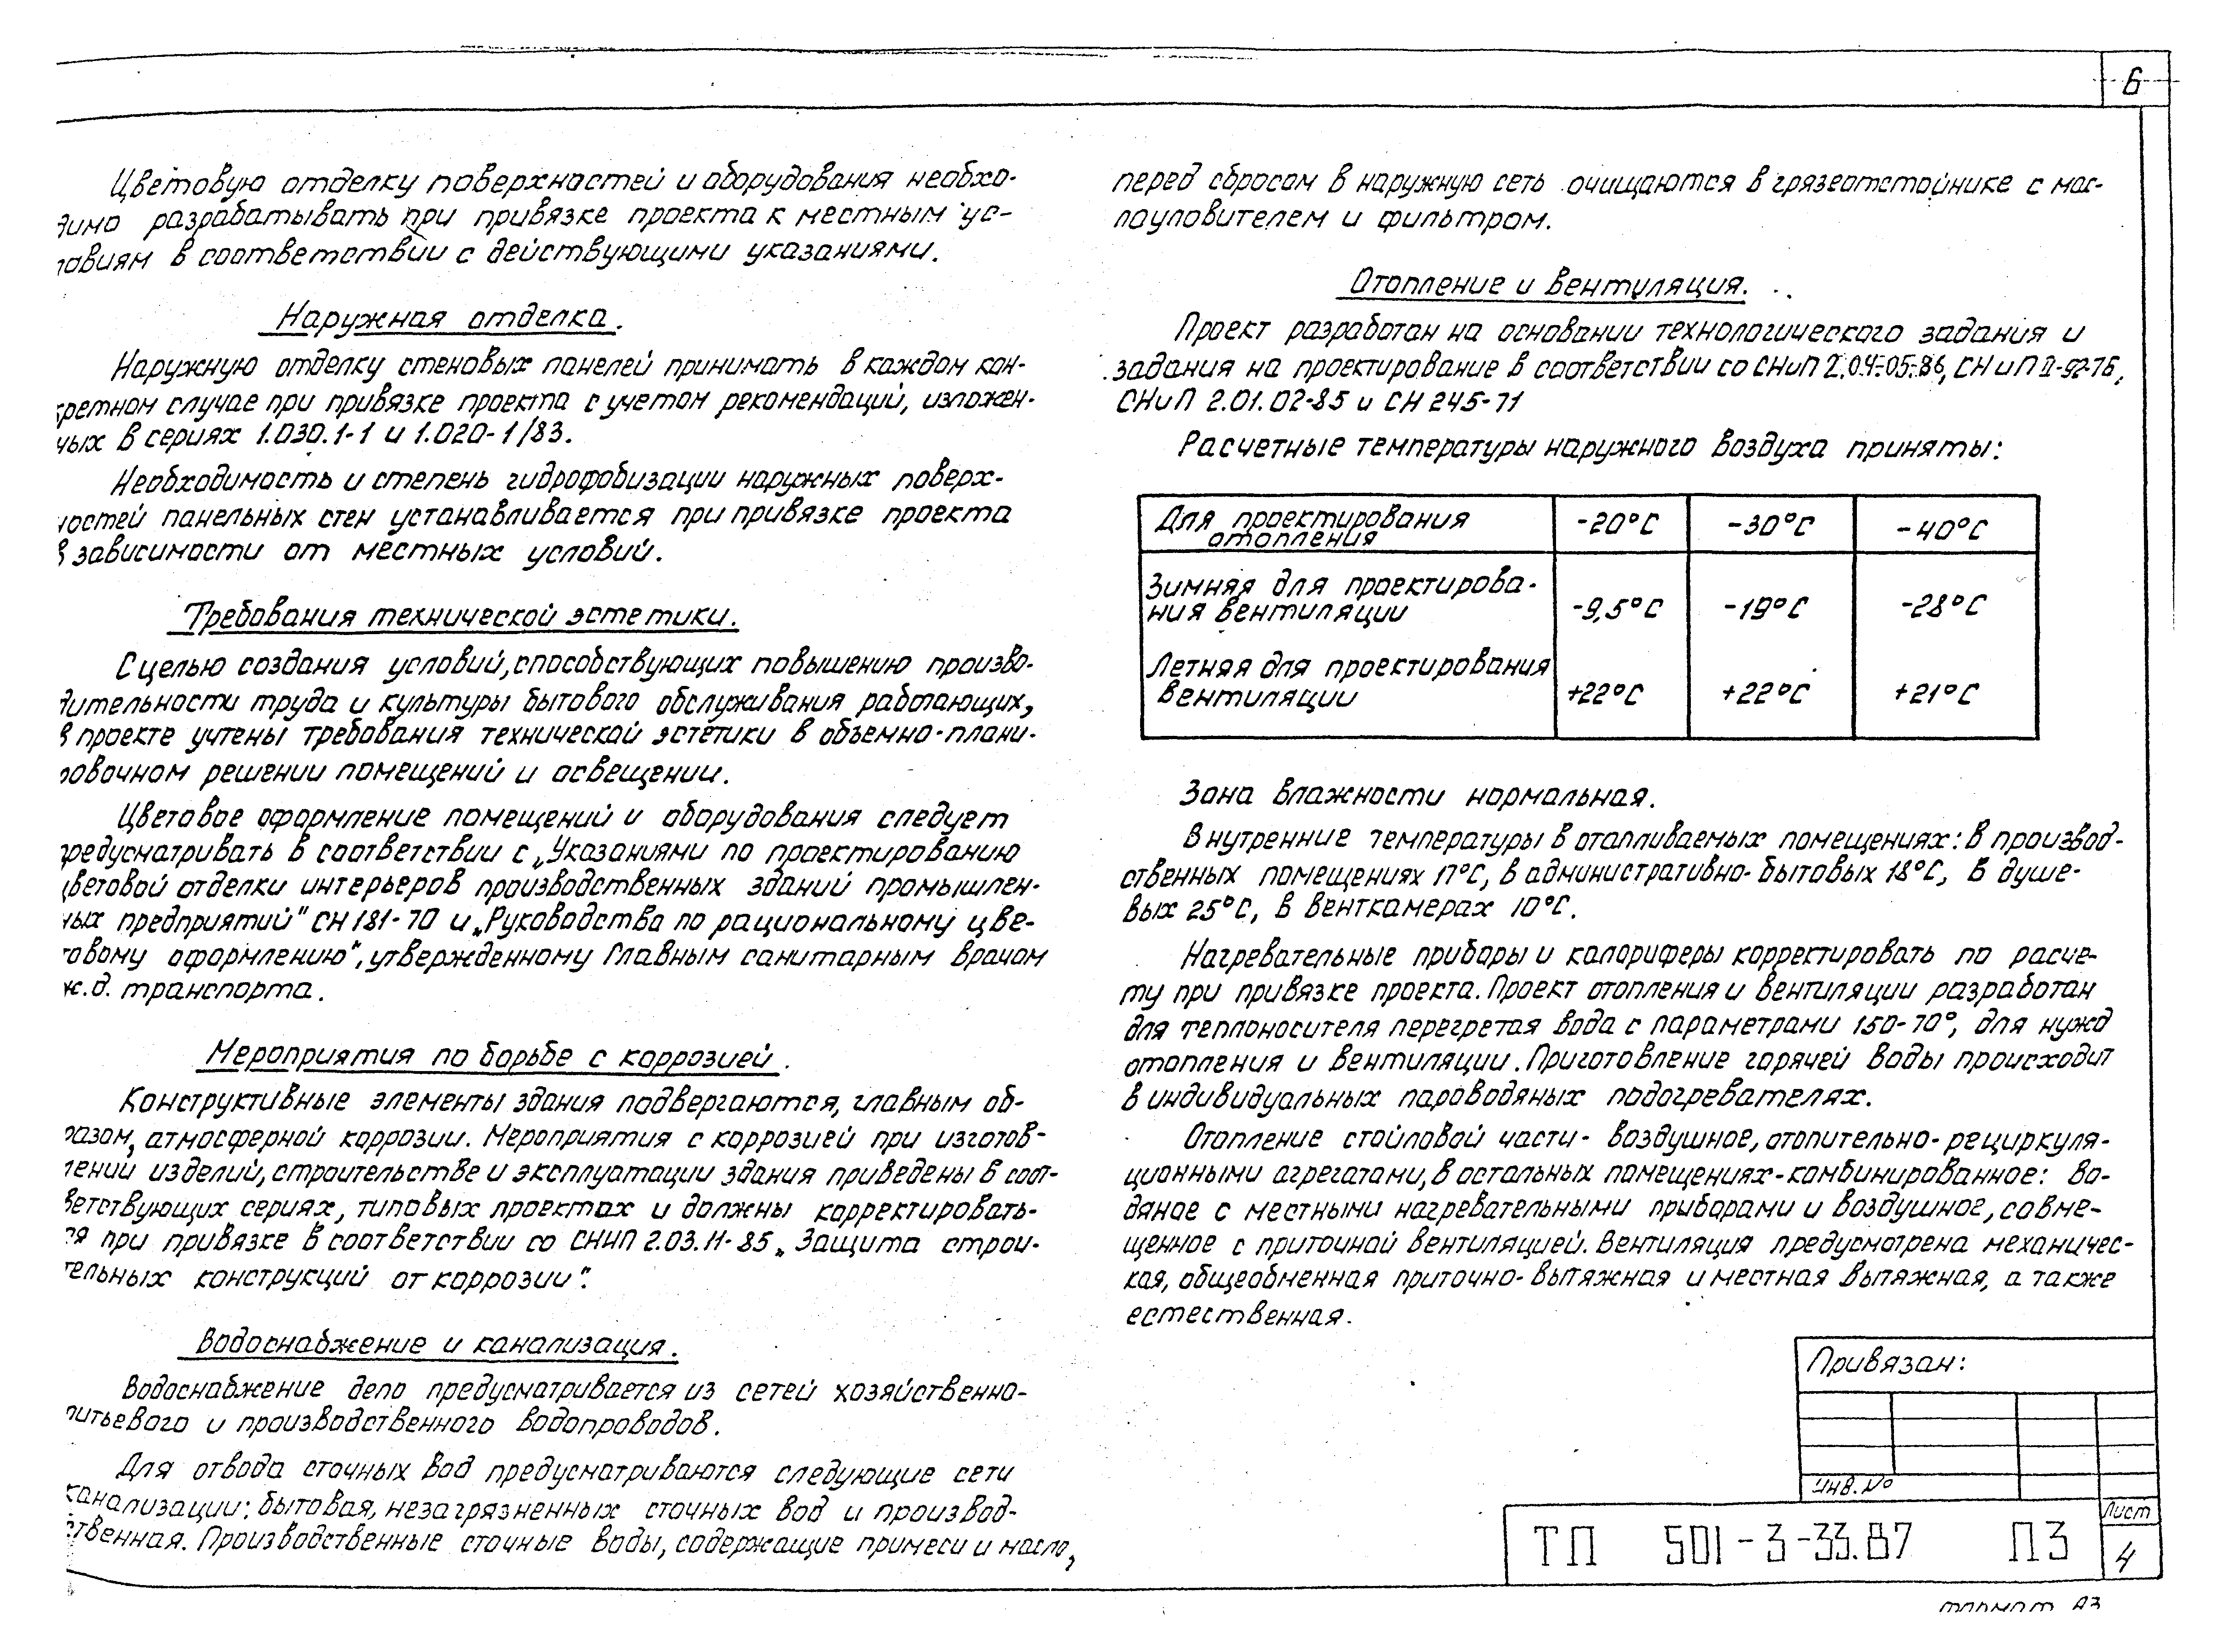 6
Цветовую отделку поверхностей и оборудования необхо-
димо разрабатывать при привязке проекта к местным ус-
ловиям в соответствии с действующими указаниями.
Наружная отделка.
Наружную отделку стеновых панелей принимать в каждом кон-
кретном случае при привязке проекта с учетом рекомендаций, изложен-
ных в сериях 1.030.1-1 и 1.020-1/83.
Необходимость и степень гидрофобизации наружных поверх-
ностей панельных стен устанавливается при привязке проекта
в зависимости от местных условий.
Требования технической эстетики.
С целью создания условий, способствующих повышению произво-
дительности труда и культуры бытового обслуживания работающих,
в проекте учтены требования технической эстетики в объемно-плани-
ровочном решении помещений и освещении.
Цветовое оформление помещений и оборудования следует
предусматривать в соответствии с „Указаниями по проектированию
цветовой отделки интерьеров производственных зданий промышлен-
ных предприятий" СН 181-70 и „Руководства по рациональному цве-
товому оформлению", утвержденному Главным санитарным врачом
ж.д. транспорта.
Мероприятия по борьбе с коррозией.
Конструктивные элементы здания подвергаются, главным об-
разом, атмосферной коррозии. Мероприятия с коррозией при изготов-
лении изделий, строительстве и эксплуатации здания приведены в соот-
ветствующих сериях, типовых проектах и должны корректировать-
ся при привязке в соответствии со СНиП 2.03.11-85 „Защита строи-
тельных конструкций от коррозии".
Водоснабжение и канализация.
Водоснабжение депо предусматривается из сетей хозяйственно-
питьевого и производственного водопроводов.
Для отвода сточных вод предусматриваются следующие сети
канализации: бытовая, незагрязненных сточных вод и производ-
ственная. Производственные сточные воды, содержащие примеси и масло,
перед сбросом в наружную сеть очищаются в грязеотстойнике с мас-
лоуловителем и фильтром.
Отопление и вентиляция.
Проект разработан на основании технологического задания и
задания на проектирование в соответствии со СНиП 2.04-05-86, СНиП II-92-76,
СНиП 2.01.02-85 и СН 245-71
Расчетные температуры наружного воздуха приняты:
Для проектирования
отопления
-20°С
-30°С
-40°С
Зимняя для проектирова-
ния вентиляции
-9,5°С
-19°С
-28°С
Летняя для проектирования
вентиляции
+22°С
+22°С
+21°С
Зона влажности нормальная.
Внутренние температуры в отапливаемых помещениях: в производ-
ственных помещениях 17°С, в административно-бытовых 18°С, в душе-
вых 25°С, в венткамерах 10°С.
Нагревательные приборы и калориферы корректировать по расче-
ту при привязке проекта. Проект отопления и вентиляции разработан
для теплоносителя перегретая вода с параметрами 150-70°, для нужд
отопления и вентиляции. Приготовление горячей воды происходит
в индивидуальных пароводяных подогревателях.
Отопление стойловой части - воздушное, отопительно-рециркуля-
ционными агрегатами, в остальных помещениях-комбинированное: во-
дяное с местными нагревательными приборами и воздушное, совме-
щенное с приточной вентиляцией. Вентиляция предусмотрена механичес-
кая, общеобменная приточно-вытяжная и местная вытяжная, а также
естественная.
Привязан:
Инв.№
ТП 501-3-33.87 ПЗ
Лист
4
формат А3